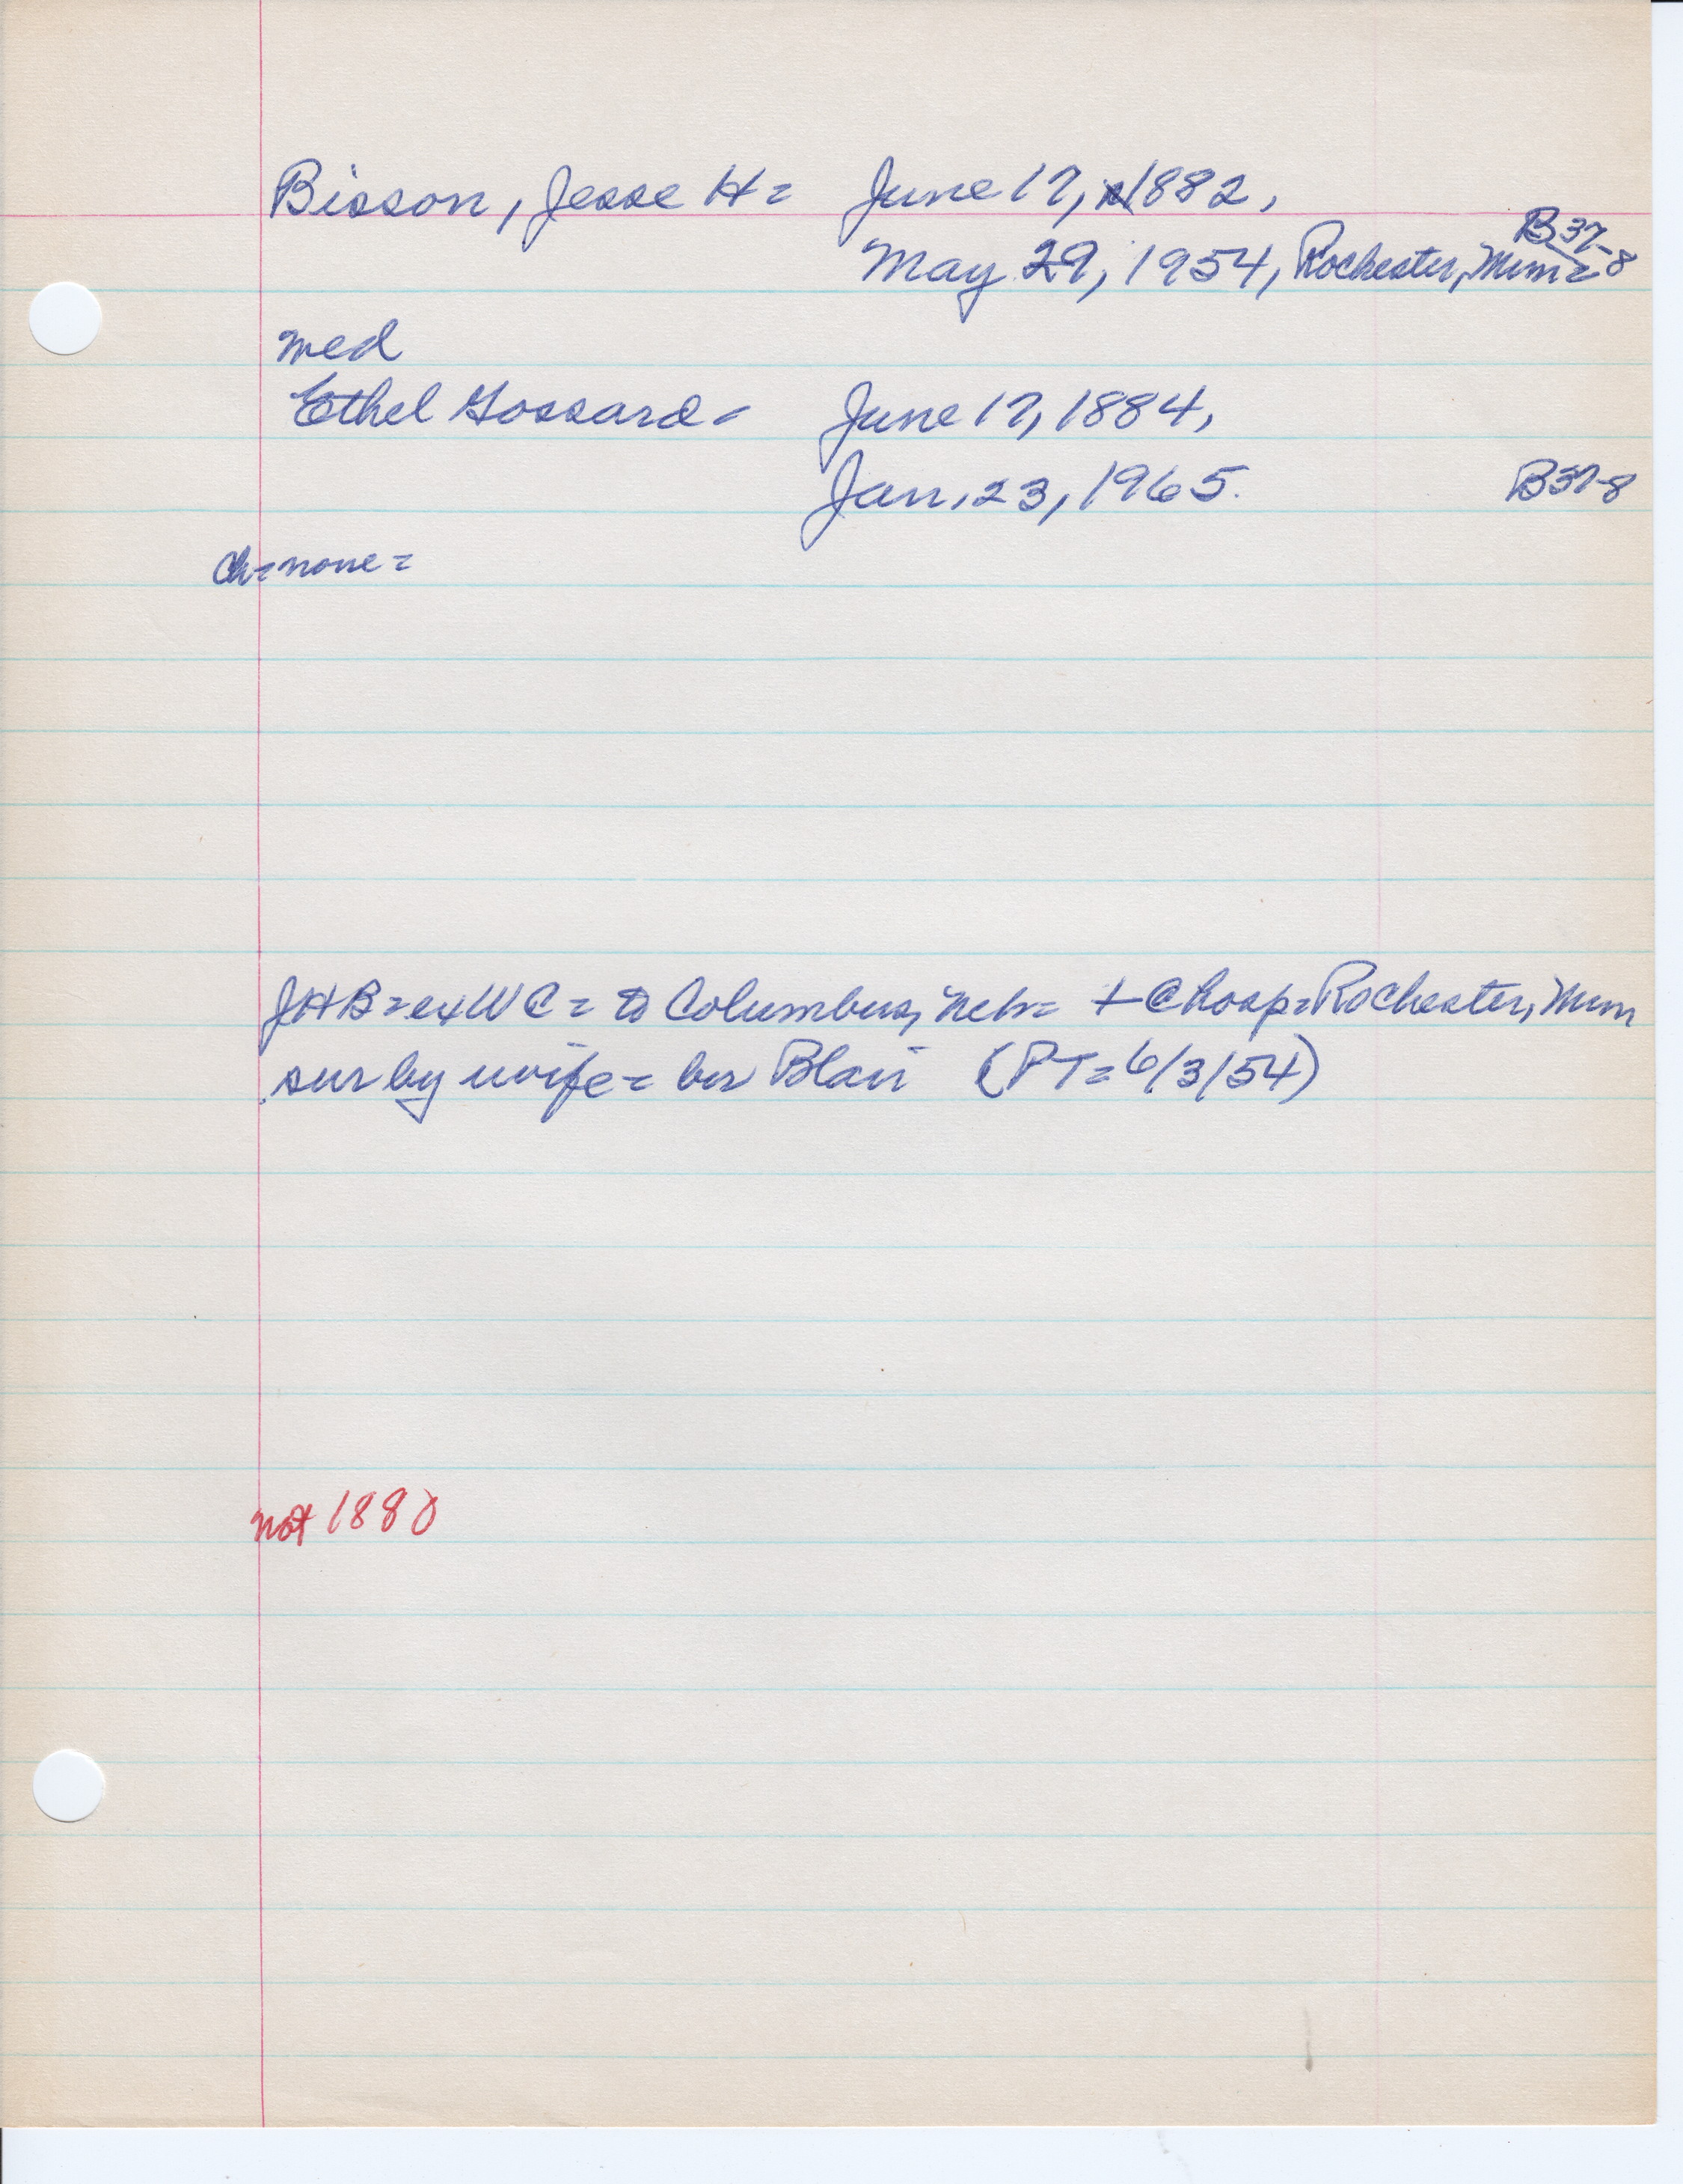 Bisson, Jesse H = June 17, 1882,
May 29, 1954, Rochester, Minn = B37-8
med
Ethel Gossard = June 17, 1884,
Jan. 23, 1965. B37-8
ch = none =
JHB = ex WC = to Columbus, Neb = + @ hosp = Rochester, Minn
sur by wife = bur Blair (PT = 6/3/54)
not 1880